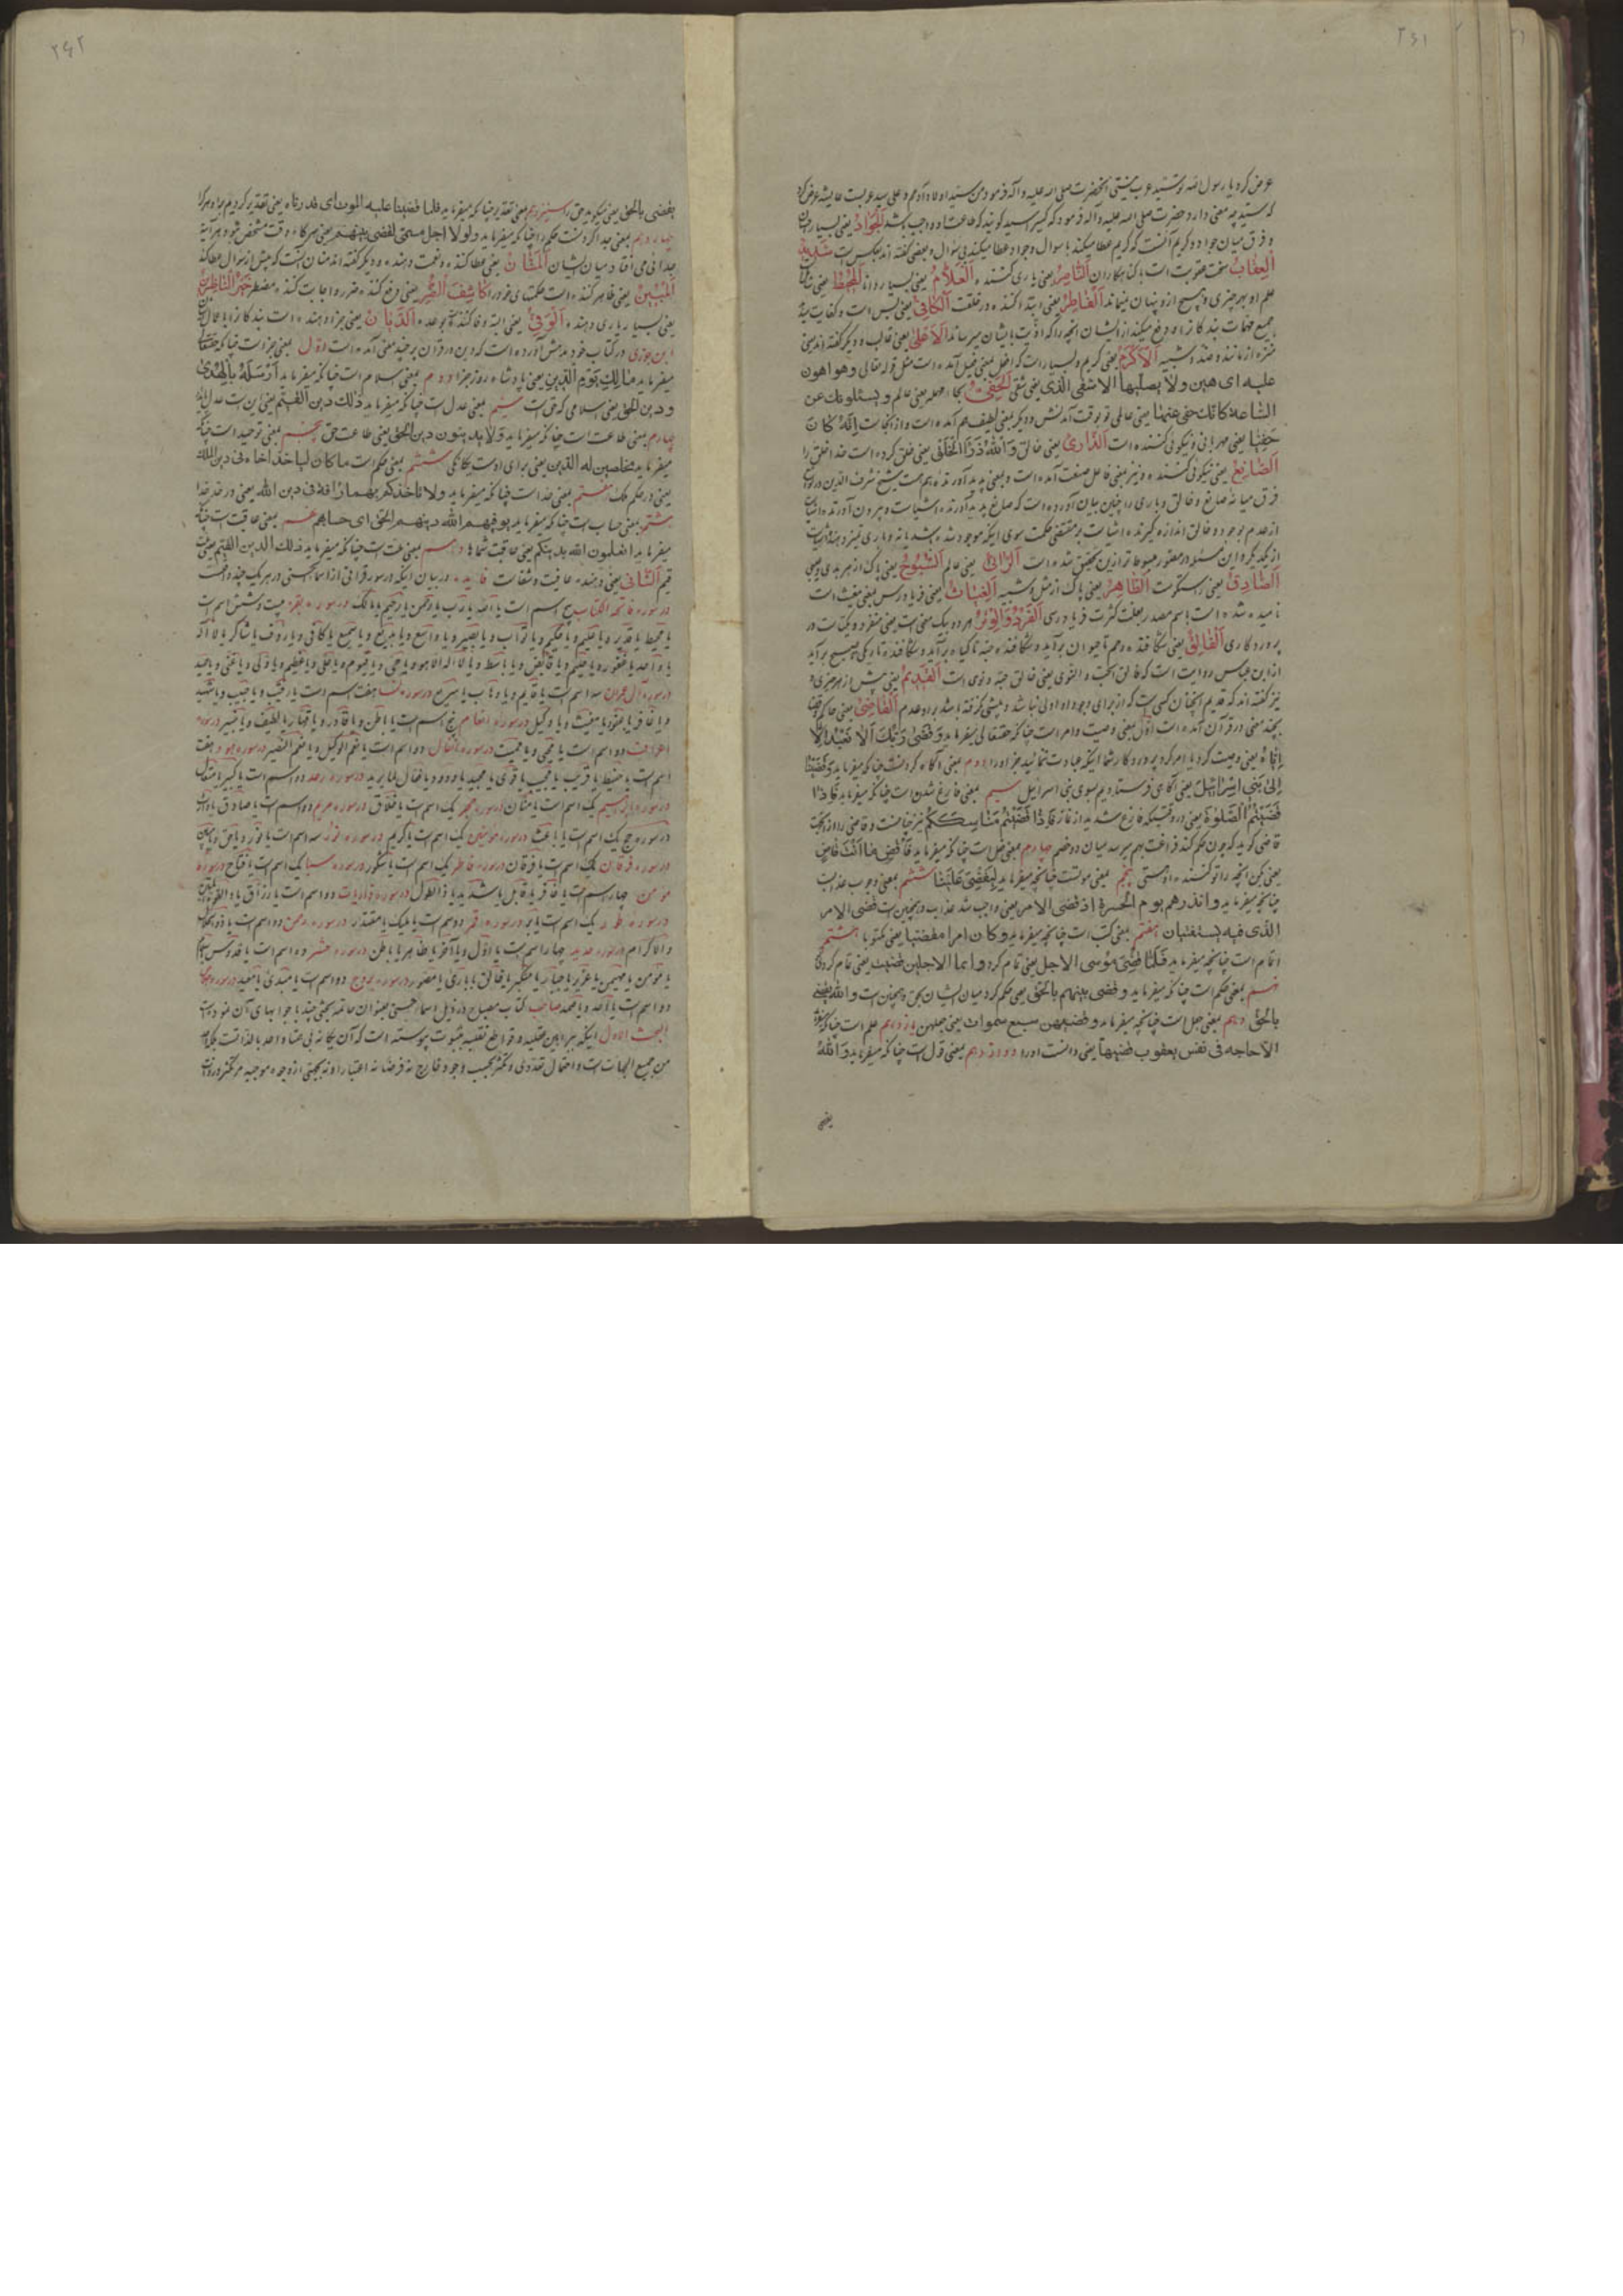 ۲۶۱
عرض کرد یا رسول الله تو سید عرب نیستی آنحضرت صلی الله علیه و آله فرمود من سید اولاد آدمم و علی سید عربست عایشه عرض کرد
که سید چه معنی دارد حضرت صلی الله علیه و آله فرمود که کسیرا سید گویند که طاعت او واجب باشد اَلْجَوادُ یعنی بسیار احسان
و فرق میان جواد و کریم آنست که کریم عطا میکند با سوال و جواد عطا میکند بی سوال و بعضی گفته اند بعکس است شَدیدُ
الْعِقابِ سخت عقوبت است با گناهکاران اَلنّاصِرُ یعنی یاری کننده اَلْعَلّامُ یعنی بسیار دانا اَلْمُحیطُ یعنی
علم او بهر چیزی و هیچ از او پنهان نیماند اَلْفاطِرُ یعنی ابتدا کننده در خلقت اَلْکافی یعنی بس است و کفایت
جمیع مهمات بندگانرا و دفع میکند از ایشان آنچه را که اذیت بایشان میرساند اَلْاَعْلیٰ یعنی غالب و دیگر گفته اند یعنی
منزه از مانند و ضد و شبیه اَلْاَکْرَمُ یعنی کریم و بسیار است که افعل بمعنی فعیل آمده است مثل قوله تعالی و هو اهون
علیه ای هین و لا یصلیها الا الاشقی الذی یعنی شقی اَلْحَفِیُّ بحاء مهمله یعنی عالم و یسئلونک عن
الساعة کانک حفی عنها یعنی عالمی تو بوقت آمدنش و دیگر بمعنی لطیف هم آمده است و از آنجاست اِنَّهُ کانَ
حَفِیّا یعنی مهربانی و نیکوئی کننده است اَلذّاری یعنی خالق وَ اللهُ ذَرَأَ الْخَلْقَ یعنی خلق کرده است خدا خلق را
اَلصّانِعُ یعنی نیکوئی کننده و نیز بمعنی فاعل صنعت آمده است و بمعنی پدید آورنده هم هست شیخ شرف الدین
فرق میانه صانع و خالق و باری را چنین بیان آورده است که صانع پدید آورنده اشیاست و بیرون آورنده اشیا
از عدم بوجود و خالق اندازه گیرنده اشیاست بر مقتضی حکمت سوی اینکه موجود شده باشد یا نه و باری تمیز دهنده اشیاست
از یکدیگر و این مسئله در مبسوطتر ازین تحقیق شده است اَلرّائی یعنی عالم اَلسُّبّوحُ یعنی پاک از هر بدی و عیبی
اَلصّادِقُ یعنی راستگوست اَلطّاهِرُ یعنی پاک از مثل و شبیه اَلْغِیاثُ یعنی فریادرس بمعنی مغیث است
نامیده شده است باسم مصدر بعلت کثرت فریادرسی اَلْفَرْدُ وَ الْوِتْرُ هر دو بیک معنی است یعنی منفرد و یکتاست در
پروردگاری اَلْفالِقُ یعنی شکافنده رحم تا حیوان برآید و شکافنده حبه تا گیاه برآید و شکافنده تاریکی تا صبح برآید
از ابن عباس روایت است که فالق الحب و النوی یعنی خالق حبه و نوی است اَلْقَدیمُ یعنی پیش از هر چیزی و
نیز گفته اند که قدیم آنچنان کسی است که از برای وجود او اولی نباشد و پیشی نگرفته باشد بر او عدم اَلْقاضی یعنی حاکم و قضا
بچند معنی در قرآن آمده است اوّل بمعنی وصیت و امر است چنانکه حقتعالی میفرماید وَ قَضیٰ رَبُّکَ اَلّا تَعْبُدُوا اِلّا
اِیّاهُ یعنی وصیت کرد یا امر کرد پروردگار شما اینکه عبادت ننمائید بجز او را دوم بمعنی آگاه گردانیدن چنانکه میفرماید وَ قَضَیْنا
اِلیٰ بَنی اِسْرائیلَ یعنی آگاهی فرستادیم بسوی بنی اسرائیل سیم بمعنی فارغ شدن است چنانکه میفرماید فَاِذا
قَضَیْتُمُ الصَّلوةَ یعنی در وقتیکه فارغ شدید از نماز فَاِذا قَضَیْتُمْ مَناسِکَکُمْ نیز چنانست و قاضی را از آنجهت
قاضی گویند که چون حکم کند فراغت بهم میرسد میان دو خصم چهارم بمعنی فعل است چنانکه میفرماید فَاقْضِ ما اَنْتَ قاضٍ
یعنی بکن آنچه را تو کننده او هستی پنجم بمعنی موتست چنانچه میفرماید لِیَقْضِ عَلَیْنا ششم بمعنی وجوب عذابست
چنانچه میفرماید و انذرهم یوم الحسرة اذ قضی الامر یعنی واجب شد عذاب و همچنین است قضی الامر
الذی فیه تستفتیان هفتم بمعنی کتب است چنانچه میفرماید و کان امرا مقضیا یعنی مکتوبا هشتم
اتمام است چنانچه میفرماید فَلَمّا قَضیٰ موسی الاجل یعنی تمام کرد و ایما الاجلین قضیت یعنی تمام کردی
نهم بمعنی حکم است چنانکه میفرماید و قضی بینهم بالحق یعنی حکم کرد میان ایشان بحق و همچنان است و الله یقضی
بالحق دهم بمعنی جعل است چنانچه میفرماید و قضیهن سبع سموات یعنی جعلهن یازدهم علم است چنانکه
الا حاجة فی نفس یعقوب قضیها یعنی دانست او را دوازدهم بمعنی قول است چنانکه میفرماید وَ اللهُ
یقضی
۲۶۲
یقضی بالحق یعنی میگوید حق را سیزدهم بمعنی تقدیر چنانکه میفرماید فلما قضینا علیه الموت ای قدرناه یعنی تقدیر کردیم بر او مرگ را
چهاردهم بمعنی جدا کردنست حکم را چنانکه میفرماید و لولا اجل مسمی لقضی بینهم یعنی هرگاه وقت مشخص نبود هر آینه
جدائی می افتاد میان ایشان اَلْمَنّانُ یعنی عطا کننده و نعمت دهنده و دیگر گفته اند منان آنست که پیش از سوال عطا کند
اَلْمُبینُ یعنی ظاهر کننده است حکمتهای خود را کاشِفُ الضُّرِّ یعنی دفع کننده ضرر و اجابت کننده مضطر خَیْرُ النّاصِرینَ
یعنی بسیار یاری دهنده اَلْوَفِیُّ یعنی البته وفا کننده بوعده اَلدَّیّانُ یعنی جزا دهنده است بندگانرا باعمال
ابن جوزی در کتاب خود مدهش آورده است که دین در قرآن بر چند معنی آمده است اوّل بمعنی جزاست چنانکه حقتعالی
میفرماید مالِکِ یَوْمِ الدّینِ یعنی پادشاه روز جزا دوم بمعنی اسلام است چنانکه میفرماید اَرْسَلَهُ بِالْهُدیٰ
و دین الحق یعنی اسلامی که حق است سیم بمعنی عدل است چنانکه میفرماید ذلک دین القیم یعنی این است عدل
چهارم بمعنی طاعت است چنانکه میفرماید وَ لا یدینون دین الحق یعنی طاعت حق پنجم بمعنی توحید است چنانکه
میفرماید مخلصین له الدین یعنی برای اوست یگانگی ششم بمعنی حکم است ما کان لیاخذ اخاه فی دین الملک
یعنی در حکم ملک هفتم بمعنی حد است چنانکه میفرماید و لا تاخذکم بهما رافة فی دین الله یعنی در حد خدا
هشتم بمعنی حساب است چنانکه میفرماید یوفیهم الله دینهم الحق ای حسابهم نهم بمعنی عاقبت است چنانکه
میفرماید اتعلمون الله بدینکم یعنی عاقبت شماها دهم بمعنی ملت است چنانکه میفرماید ذلک الدین القیم یعنی
قیم اَلشّافی یعنی دهنده عافیت و شفاست فایده در بیان اینکه در سور قرآنی از اسماء حسنی در هر یک چند واقعست
در سوره فاتحة الکتاب پنج اسم است یا الله یا رب یا رحمن یا رحیم یا مالک در سوره بقره بیست و شش اسم است
یا محیط یا قدیر و یا علیم و یا حکیم و یا تواب و یا بصیر و یا واسع و یا بدیع و یا سمیع یا کافی و یا رؤف یا شاکر یا لا اله
یا واحد یا غفور و یا حلیم و یا قابض و یا باسط و یا لا اله الا هو و یا حی و یا قیوم و یا علی و یا عظیم و یا ولی و یا غنی و یا حمید
در سوره آل عمران سه اسم است یا قایم و یا وهاب یا سریع در سوره نسا هفت اسم است یا رقیب و یا حسیب و یا شهید
و یا غافر یا عفو یا مقیت و یا وکیل در سوره انعام پنج اسم است یا باطن و یا قادر و یا قهار یا لطیف و یا خبیر در سوره
اعراف دو اسم است یا محیی و یا ممیت در سوره انفال دو اسم است یا نعم الوکیل و یا نعم النصیر در سوره هود هفت
اسم است یا حفیظ یا قریب یا مجیب یا قوی یا مجید یا ودود و یا فعال لما یرید در سوره رعد دو اسم است یا کبیر یا متعال
در سوره ابراهیم یک اسم است یا منان در سوره حجر یک اسم است یا خلاق در سوره مریم دو اسم است یا صادق یا وارث
در سوره حج یک اسم است یا باعث در سوره مؤمنین یک اسم است یا کریم در سوره نور سه اسم است یا نور و یا حق و یا مبین
در سوره فرقان یک اسم است یا فرقان در سوره فاطر یک اسم است یا شکور در سوره سبا یک اسم است یا فتاح در سوره
مؤمن چهار اسم است یا غافر یا قابل یا شدید یا ذا الطول در سوره ذاریات دو اسم است یا رزاق یا ذا القوة المتین
در سوره طور یک اسم است یا بر در سوره قمر دو اسم است یا ملیک یا مقتدر در سوره رحمن دو اسم است یا ذو الجلال
و الاکرام در سوره حدید چهار اسم است یا اول و یا آخر یا ظاهر یا باطن در سوره حشر ده اسم است یا قدوس یا سلام
یا مؤمن یا مهیمن یا عزیز یا جبار یا متکبر یا خالق یا باری یا مصور در سوره بروج دو اسم است یا مبدئ یا معید در سوره
دو اسم است یا احد و یا صمد صاحب کتاب مصباح در ذیل اسماء حسنی بعنوان خاتمه بحثی چند با جوابهای آن نموده است
البحث الاول اینکه ببراهین عقلیه و قواطع نقلیه بثبوت پیوسته است که آن یگانه بی همتا واحد بالذات است بلکه
من جمیع الجهات است و احتمال تعدد نی و تکثر بحسب وجود خارج نه فرضا نه اعتبارا و نه بجهتی از وجوه موجبه مر تکثر در ذات